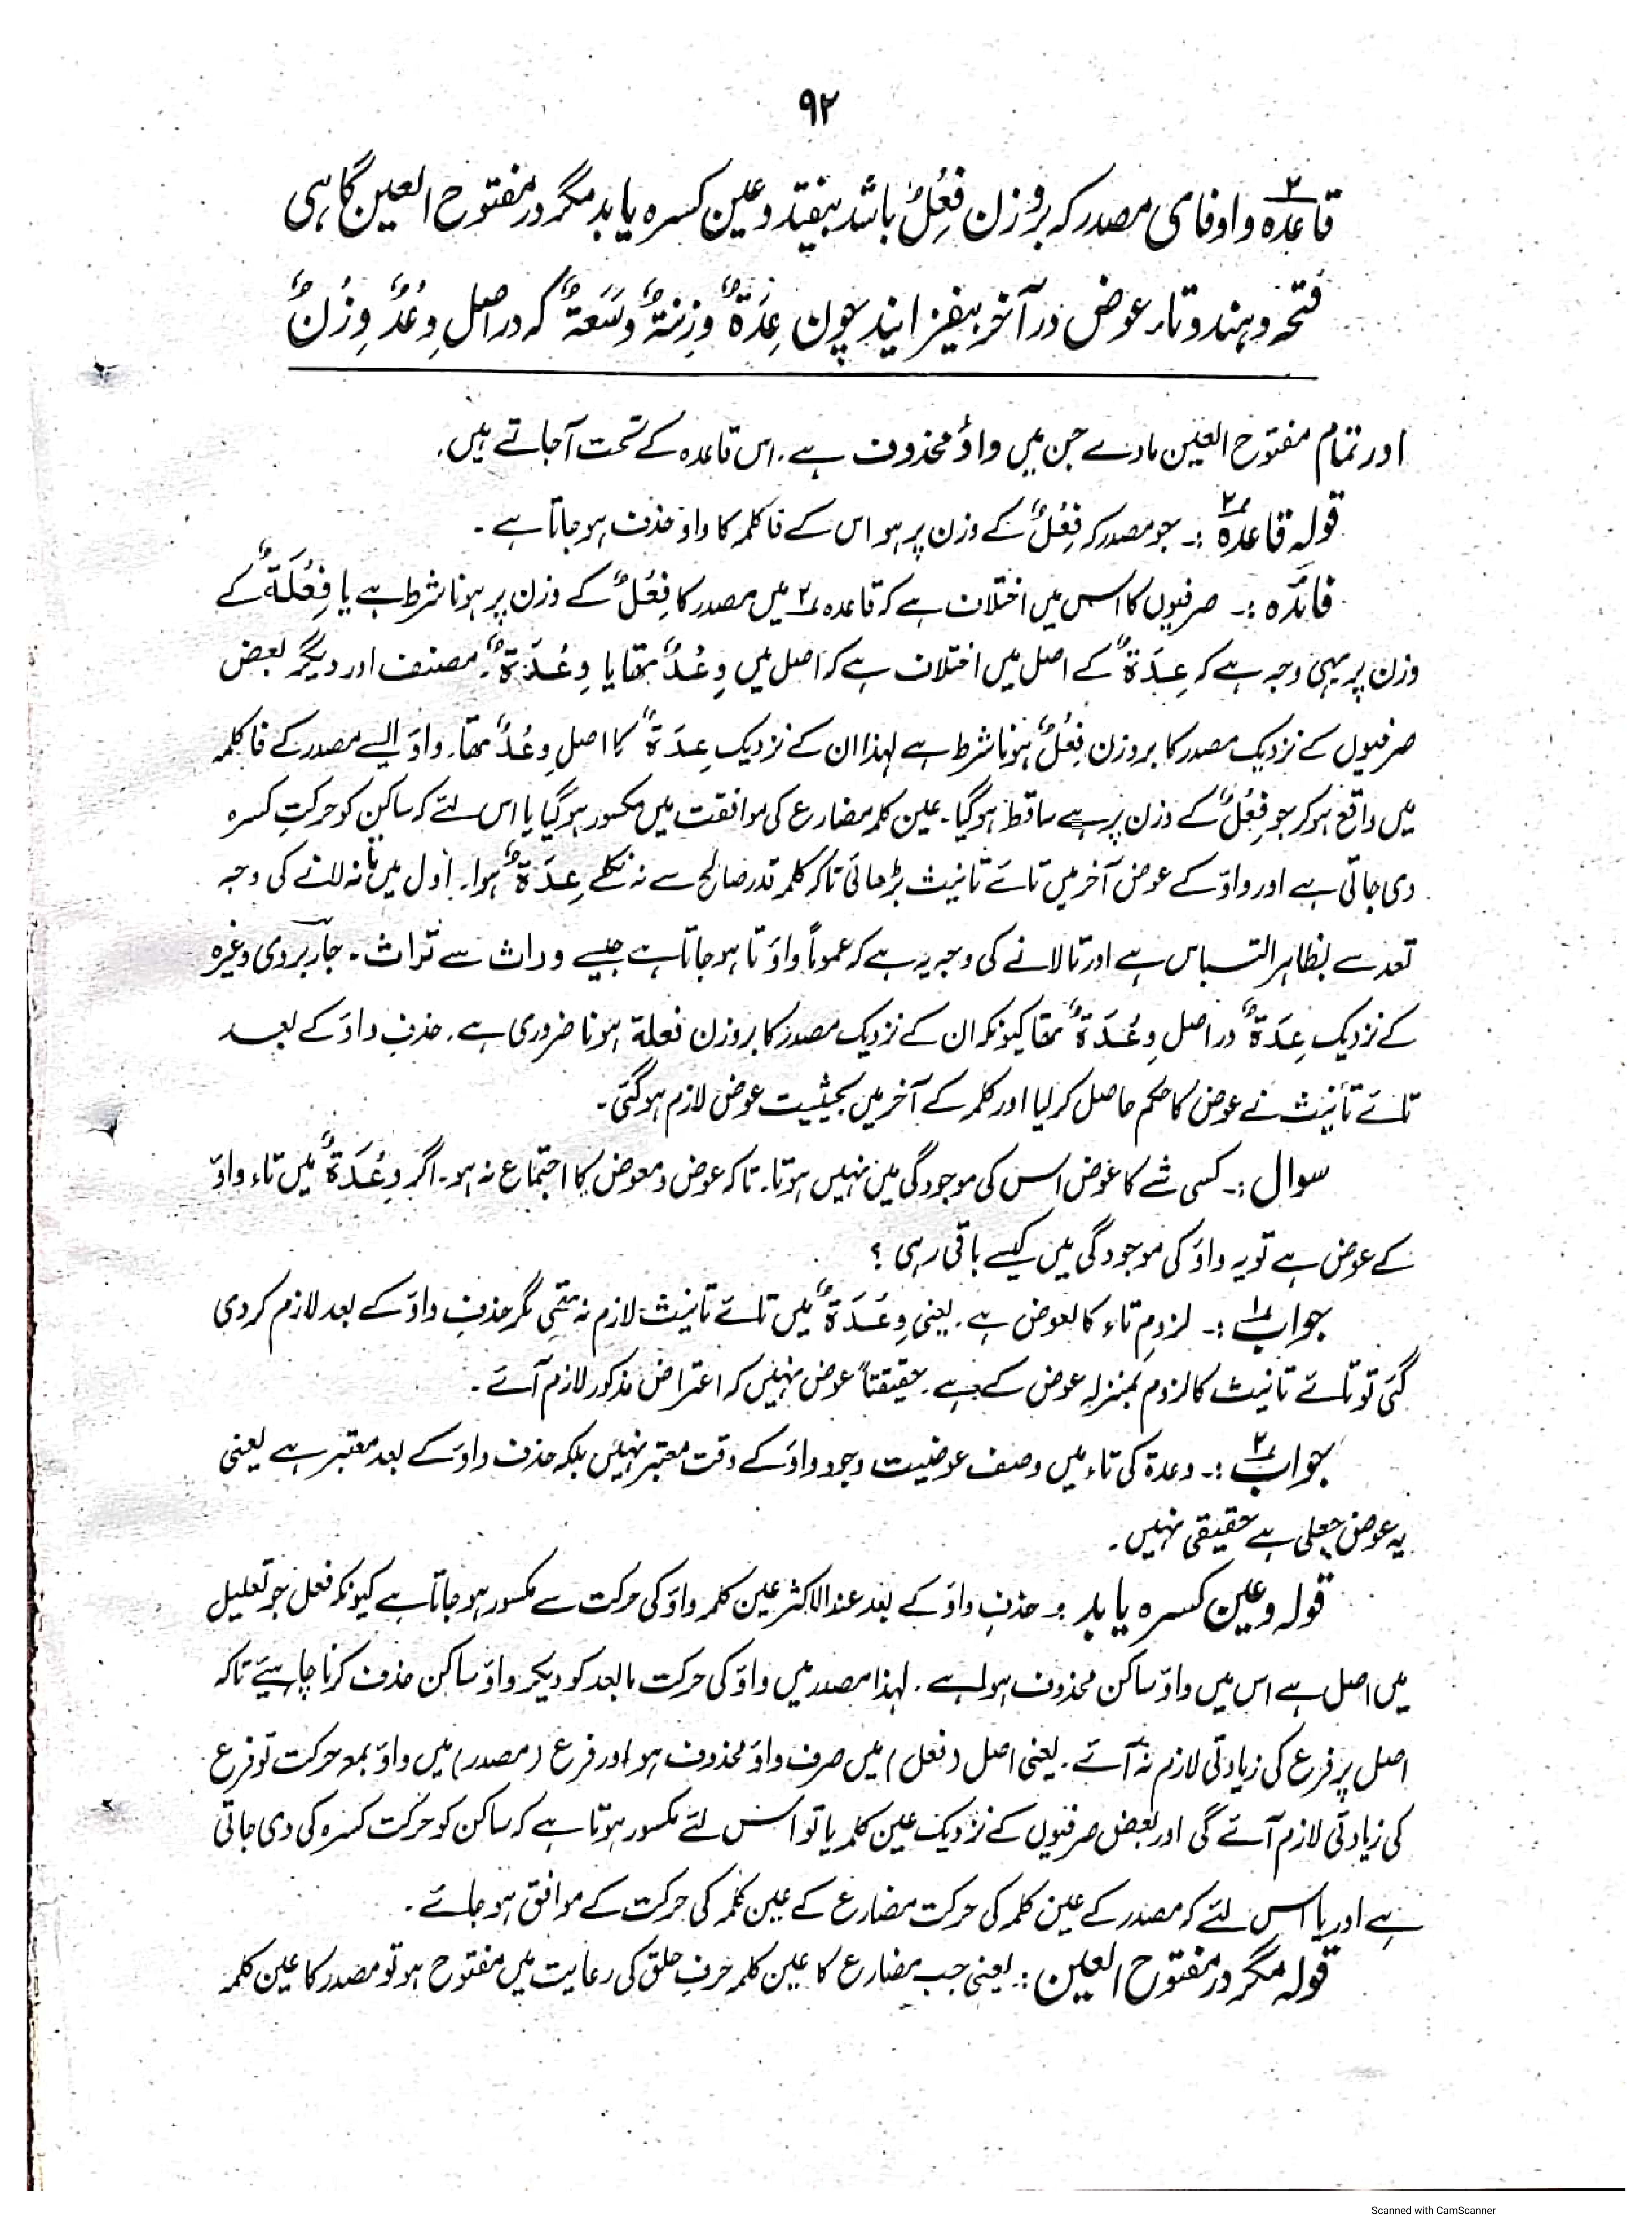 ۹۲
قاعدہ ۲ واو فای مصدر کہ بروزن فِعْلٌ باشد بیفتد و عین کسرہ یابد مگر در مفتوح العین گاہی
فتحہ دہند و تاء عوض در آخر بیفزایند چون عِدَۃٌ وزِنَۃٌ وسَعَۃٌ کہ در اصل وِعْدٌ وِزْنٌ
اور تمام مفتوح العین مادے جن میں واؤ محذوف ہے، اس قاعدہ کے تحت آجاتے ہیں۔
قولہ قاعدہ ۲ :۔ جو مصدر کہ فِعْلٌ کے وزن پر ہو اس کے فا کلمہ کا واؤ حذف ہو جاتا ہے۔
فائدہ :۔ صرفیوں کا اس میں اختلاف ہے کہ قاعدہ ۲ میں مصدر کا فِعْلٌ کے وزن پر ہونا شرط ہے یا فِعْلَۃٌ کے
وزن پر یہی وجہ ہے کہ عِدَۃٌ کے اصل میں اختلاف ہے کہ اصل میں وِعْدٌ تھا یا وِعْدَۃٌ۔ مصنف اور دیگر بعض
صرفیوں کے نزدیک مصدر کا بروزن فِعْلٌ ہونا شرط ہے لہذا ان کے نزدیک عِدَۃٌ کا اصل وِعْدٌ تھا۔ واؤ ایسے مصدر کے فا کلمہ
میں واقع ہو کر جو فِعْلٌ کے وزن پر ہے ساقط ہو گیا۔ عین کلمہ مضارع کی موافقت میں مکسور ہو گیا یا اس لئے کہ ساکن کو حرکتِ کسرہ
دی جاتی ہے اور واؤ کے عوض آخر میں تائے تانیث بڑھائی تاکہ کلمہ قدر صالح سے نہ نکلے عِدَۃٌ ہوا۔ اول میں تا نہ لانے کی وجہ
تعد سے بظاہر التباس ہے اور تا لانے کی وجہ یہ ہے کہ عموماً واؤ تا ہو جاتا ہے جیسے وراث سے تراث۔ جاربردی وغیرہ
کے نزدیک عِدَۃٌ دراصل وِعْدَۃٌ تھا کیونکہ ان کے نزدیک مصدر کا بروزن فعلۃ ہونا ضروری ہے۔ حذفِ واؤ کے بعد
تائے تانیث نے عوض کا حکم حاصل کر لیا اور کلمہ کے آخر میں بحیثیت عوض لازم ہو گئی۔
سوال :۔ کسی شے کا عوض اس کی موجودگی میں نہیں ہوتا۔ تاکہ عوض و معوض کا اجتماع نہ ہو۔ اگر وِعْدَۃٌ میں تاء واؤ
کے عوض ہے تو یہ واؤ کی موجودگی میں کیسے باقی رہی ؟
جواب ۱ :۔ لزوم تاء کا بعوض ہے۔ یعنی وِعْدَۃٌ میں تائے تانیث لازم نہ تھی مگر حذفِ واؤ کے بعد لازم کر دی
گئی تو تائے تانیث کا لزوم بمنزلہ عوض کے ہے۔ حقیقتاً عوض نہیں کہ اعتراض مذکور لازم آئے۔
جواب ۲ :۔ وعدۃ کی تاء میں وصف عوضیت وجود واؤ کے وقت معتبر نہیں بلکہ حذف واؤ کے بعد معتبر ہے یعنی
یہ عوض جعلی ہے حقیقی نہیں۔
قولہ و عین کسرہ یابد :۔ حذفِ واؤ کے بعد عند الاکثر عین کلمہ واؤ کی حرکت سے مکسور ہو جاتا ہے کیونکہ فعل جو تعلیل
میں اصل ہے اس میں واؤ ساکن محذوف ہوا ہے۔ لہذا مصدر میں واؤ کی حرکت مابعد کو دیکر واؤ ساکن حذف کرنا چاہیئے تاکہ
اصل پر فرع کی زیادتی لازم نہ آئے۔ یعنی اصل (فعل) میں صرف واؤ محذوف ہو اور فرع (مصدر) میں واؤ بمعہ حرکت تو فرع
کی زیادتی لازم آئے گی اور بعض صرفیوں کے نزدیک عین کلمہ یا تو اس لئے مکسور ہوتا ہے کہ ساکن کو حرکت کسرہ کی دی جاتی
ہے اور یا اس لئے کہ مصدر کے عین کلمہ کی حرکت مضارع کے عین کلمہ کی حرکت کے موافق ہو جائے۔
قولہ مگر در مفتوح العین :۔ یعنی جب مضارع کا عین کلمہ حرف حلق کی رعایت میں مفتوح ہو تو مصدر کا عین کلمہ
Scanned with CamScanner